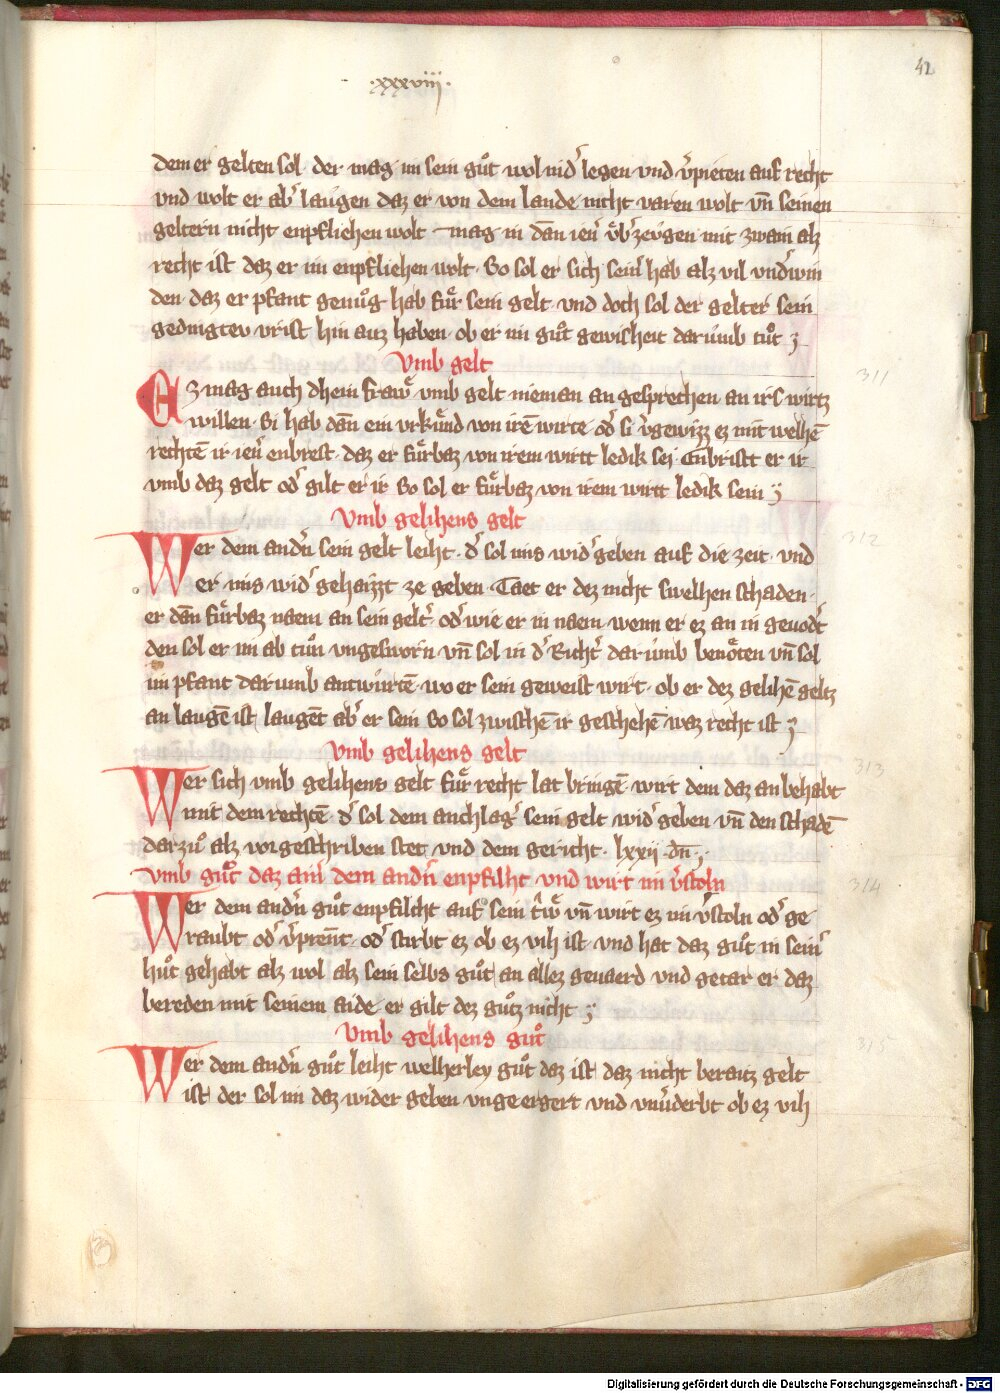 ·xxxviii·
42
dem er gelten sol · der mag im sein gůt wol nid᷑ legen vnd v᷑pieten auf recht
vnd wolt er ab᷑ laugen daz er von dem lande nicht varen wolt vn̄ seinen
geltern nicht enpfliehen wolt · mag in dān ien᷑ v̊b᷑zeugen mit zwain alz
recht ist daz er im enpfliehen wolt · So sol er sich sein᷑ hab alz vil vnd᷑win
den · daz er pfant genůg hab fuͤr sein gelt · vnd doch sol der gelter sein
gedingtev vrist hin auz haben · ob er im gůt gewisheit darumb tůt
Vmb gelt
311
Ez mag auch dhein fraw᷑ vmb gelt nieman an gesprechen an irs wirtz
willen · Si hab dān ein vrkuͤnd von irē wirte · od᷑ si v᷑gewizz ez mit welhē
rechtē ir ien᷑ enbrest · daz er fuͤrbaz von irem wirtt ledik sei · Enbristt er ir
vmb daz gelt od᷑ gilt er ir So sol er fuͤrbaz von irem wirtt ledik sein
Vmb gelihens gelt
312
Wer dem andn᷑ sein gelt leiht · d᷑ sol ims wid᷑ geben auf die zeit · vnd
er ims wid᷑ gehaizzt ze geben · Taet er dez nicht swelhen schaden ·
er dān fuͤrbaz naem an sein gelt᷑ · od᷑ wie er in naem · wenn er ez an in geuod᷑t
den sol er im ab tůn vngesworn vn̄ sol in d᷑ Richt᷑ darumb benoͤten vn̄ sol
im pfant darumb antwurtē · wo er sein geweist wirt · ob er dez gelihē geltz
an laugē ist laugēt ab᷑ er sein So sol zwischē ir geschehē waz recht ist
Vmb gelihens gelt
313
Wer sich vmb gelihens gelt fuͤr recht lat bringē · wirt dem daz an behabt
mit dem rechtē · d᷑ sol dem anchlag᷑ sein gelt wid᷑ geben vn̄ den schadē
darzů alz vorgeschriben stet · vnd dem gericht · lxxii · dn̄ ·
Vmb gůt daz ain᷑ dem andn᷑ enpfilht · vnd wirt im v᷑stoln
314
Wer dem andn᷑ gůt enpfilcht auf sein trw᷑ vn̄ wirt ez im v᷑stoln od᷑ ge
raubt od᷑ v᷑prent · od᷑ stirbt ez ob ez vih ist · vnd hat daz gůt in sein᷑
hůt gehabt alz wol alz sein selbs gůt an allez geuaerd vnd getar er daz
bereden mit seinem aide · er gilt dez gůtz nicht
Vmb gelihens gůt
315
Wer dem andn᷑ gůt leiht welherley gůt daz ist daz nicht beraitz gelt
ist der sol im daz wider geben vngeergert vnd vnu᷑derbt ob ez vih
Digitalisierung gefördert durch die Deutsche Forschungsgemeinschaft - DFG